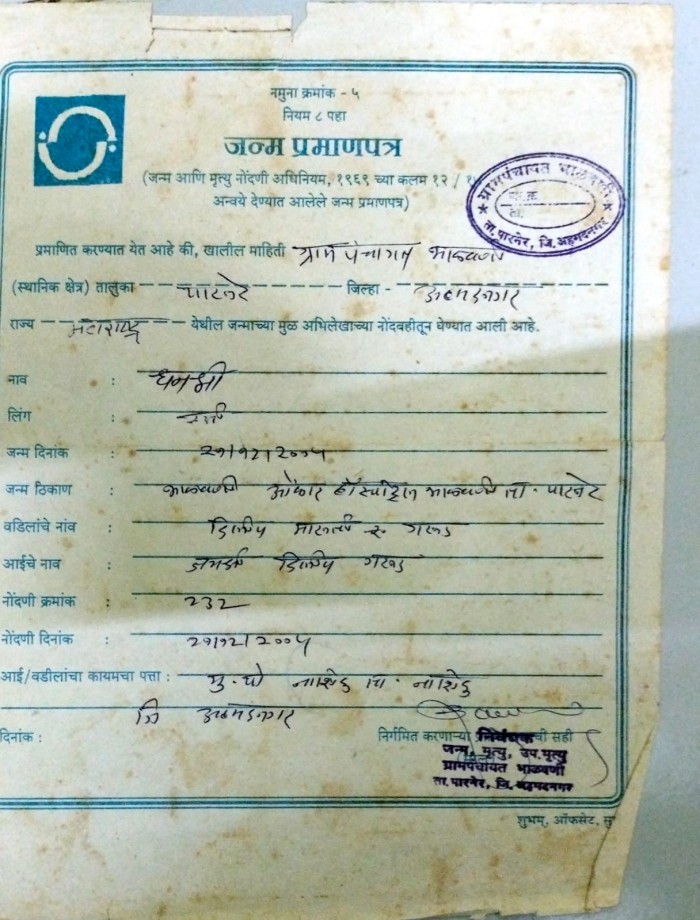 नमुना क्रमांक - ५
नियम ८ पहा
जन्म प्रमाणपत्र
(जन्म आणि मृत्यु नोंदणी अधिनियम, १९६९ च्या कलम १२ /
अन्वये देण्यात आलेले जन्म प्रमाणपत्र)
ग्रामपंचायत भाळवणी
ता. पारनेर, जि. अहमदनगर
प्रमाणित करण्यात येत आहे की, खालील माहिती ग्राम पंचायत भाळवणी
(स्थानिक क्षेत्र) तालुका पारनेर जिल्हा - अहमदनगर
राज्य महाराष्ट्र येथील जन्माच्या मुळ अभिलेखाच्या नोंदवहीतून घेण्यात आली आहे.
नाव : धनश्री
लिंग : स्त्री
जन्म दिनांक : २१/१२/२००५
जन्म ठिकाण : भाळवणी ओंकार हॉस्पिटल भाळवणी ता. पारनेर
वडिलांचे नांव : दिलीप मारुती गरुड
आईचे नाव : दिलीप गरुड
नोंदणी क्रमांक : २३२
नोंदणी दिनांक : २९/१२/२००५
आई/वडीलांचा कायमचा पत्ता : मु. पो
जि अहमदनगर
दिनांक : निर्गमित करणाऱ्या ची सही
निबंधक
जन्म, मृत्यु, उप.मृत्यु
ग्रामपंचायत भाळवणी
ता. पारनेर, जि. अहमदनगर
शुभम्, ऑफसेट,